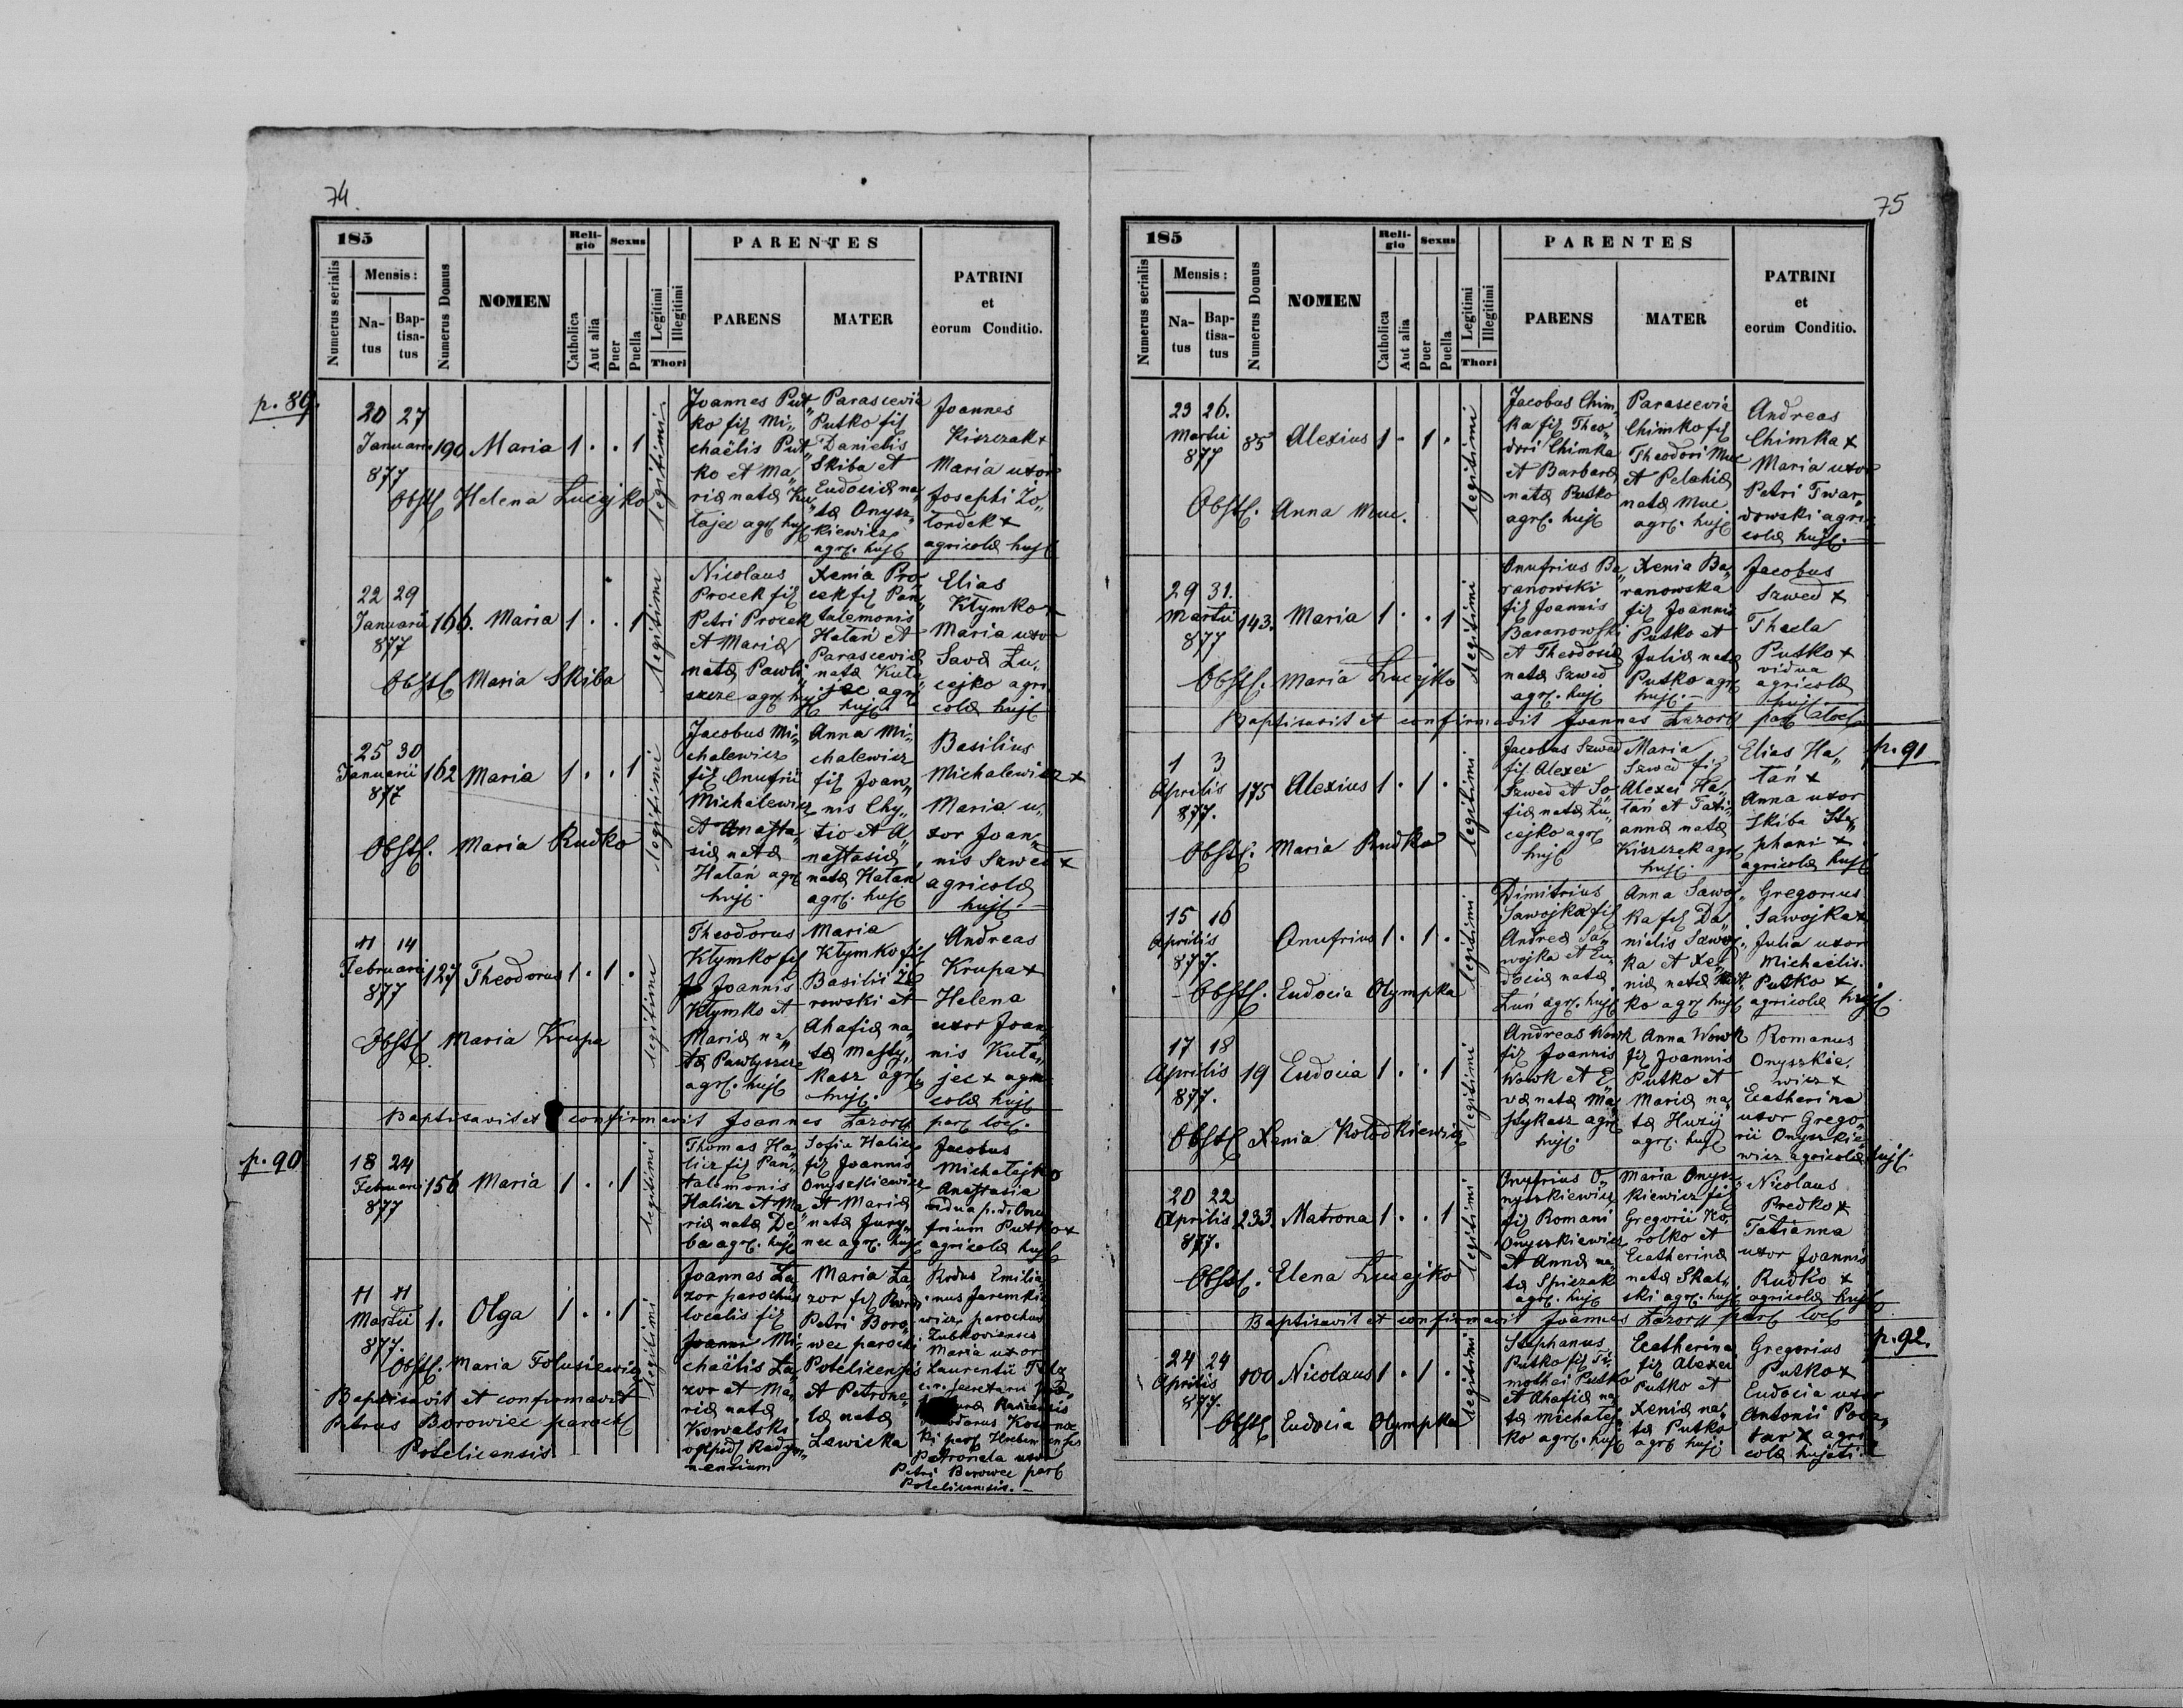 74.
185
Numerus serialis
Mensis:
Na-
tus
Bap-
tisa-
tus
Numerus Domus
NOMEN
Reli-
gio
Catholica
Aut alia
Sexus
Puer
Puella
Legitimi
Illegitimi
Thori
PARENTES
PARENS
MATER
PATRINI
et
eorum Conditio.
p. 89.
20 27
Januarii
877
190
Maria
1 . . 1
legitimi
Obst. Helena Lucejko
Joannes Put„
ko fil Mi„
chaëlis Put„
ko et Ma„
ria nata Ku„
łajec agr. huj
Parascevia
Putko fil
Danielis
Skiba et
Eudocia na„
ta Onysz„
kiewicz
agr. huj
Joannes
Kiszczak +
Maria uxor
Josephi Zo„
łordek +
agricolæ huj
22 29
Januarii
877
166.
Maria
1 . . 1
legitimi
Obst. Maria Skiba
Nicolaus
Procek fil
Petri Procek
et Maria
nata Pawli„
szcze agr huj
Xenia Pro„
cek fil Pan„
talemonis
Hałań et
Parascevia
nata Kuła„
jec agr
huj.
Elias
Kłymko +
Maria uxor
Savæ Lu„
cejko agri
colæ huj
25 30
Januarii
877
162
Maria
1 . . 1
legitimi
Obst. Maria Rudko
Jacobus Mi„
chalewicz
fil Onufrii
Michalewicz
et Anasta„
sia nata
Hałan agr
huj.
Anna Mi„
chalewicz
fil Joan„
nis Chy„
tio et A„
nastasia
nata Hałan
agr. huj
Basilius
Michalewicz +
Maria u„
xor Joan„
nis Szwed +
agricolæ
huj.
11 14
Februarii
877
127
Theodorus
1 . 1 .
legitimi
Obst. Maria Krupa
Theodorus
Kłymko fil
Joannis
Kłymko et
Maria na„
ta Pawłyszcze
agr. huj
Maria
Kłymko fil
Basilii Żu„
rowski et
Ahafia na„
ta Masty„
kasz agr
huj.
Andreas
Krupa +
Helena
uxor Joan„
nis Kuła„
jec + agri
colæ huj
Baptisavit et confirmavit Joannes Lazor par loc.
p. 90
18 24
Februarii
877
156
Maria
1 . . 1
legitimi
Thomas Ha„
licz fil Pan„
talemonis
Halicz et Ma„
ria nata De„
ba agr. huj
Sofia Halicz
fil Joannis
Onyszkiewicz
et Maria
nata Jury„
nec agr. huj
Jacobus
Michałejko
Anastasia
vidua p. d. Onu
frium Putko +
agricolæ huj
11 11
Martii
877.
1.
Olga
1 . . 1
legitimi
Obst. Maria Folusiewicz
Baptisavit et confirmavit
Petrus Borowiec paroch
Potelicensis
Joannes La„
zor parochus
localis fil
Mi„
chaëlis La„
zor et Ma„
ria nata
Kowalski
oppid Radym„
nensium
Maria La„
zor fil
Petri Boro„
wec parochi
Potelicensis
et Petrone„
la nata
Lewicka
Rndus Emilia
nus Jaremkie
wicz parochus
Zubkoviensis
Maria uxor
Laurentii
Petronela uxor
Petri Borowec par
Potelicensis. —
75
185
Numerus serialis
Mensis:
Na-
tus
Bap-
tisa-
tus
Numerus Domus
NOMEN
Reli-
gio
Catholica
Aut alia
Sexus
Puer
Puella
Legitimi
Illegitimi
Thori
PARENTES
PARENS
MATER
PATRINI
et
eorum Conditio.
23 26.
Martii
877
85
Alexius
1 . 1 .
legitimi
Obst. Anna Muc.
Jacobus Chim„
ka fil Theo„
dori Chimka
et Barbara
nata Putko
agr. huj
Parascevia
Chimko fil
Theodori Muc
et Pelahia
nata Muc
agr. huj
Andreas
Chimka +
Maria uxor
Petri Twar„
dowski agri
colæ huj. —
29 31.
Martii
877
143.
Maria
1 . . 1
legitimi
Obst. Maria Lucejko
Onufrius Ba„
ranowski
fil Joannis
Baranowski
et Theodosia
nata Szwed
agr. huj
Xenia Ba„
ranowska
fil Joannis
Putko et
Julia nata
Putko agr
huj. —
Jacobus
Szwed +
Thecla
Putko +
vidua
agricolæ
huj. —
Baptisavit et confirmavit Joannes Lazor par loc
p. 91
1 3
Aprilis
877.
175
Alexius
1 . 1 .
legitimi
Obst. Maria Rudko
Jacobus Szwed
fil Alexei
Szwed et So„
fia nata Lu„
cejko agr
huj
Maria
Szwed fil
Alexei Ha„
łań et Tati„
anna nata
Kiszczek agr
huj
Elias Ha„
łań +
Anna uxor
Skiba Ste„
phani +
agricolæ huj
15 16
Aprilis
877.
Onufrius
1 . 1 .
legitimi
Obst. Eudocia Olympka
Dimitrius
Sawojka fil
Andreæ Sa„
wojka et Eu„
docia nata
Łuń agr. huj
Anna Sawoj„
ka fil Da„
nielis Sawoj„
ka et Xe„
nia nata
ko agr huj
Gregorius
Sawojka +
Julia uxor
Michaëlis
Putko +
agricolæ huj.
17 18
Aprilis
877.
19
Eudocia
1 . . 1
legitimi
Obst. Xenia Kołodkiewicz
Andreas Wowk
fil Joannis
Wowk et E„
va nata Ma„
stykasz agr
huj.
Anna Wowk
fil Joannis
Putko et
Maria na„
ta Huzij
agr. huj
Romanus
Onyszkie„
wicz +
Ecatherina
uxor Grego„
rii Onyszkie„
wicz agricolæ huj.
20 22
Aprilis
877.
233.
Matrona
1 . . 1
legitimi
Obst. Elena Lucejko
Onufrius O„
nyszkiewicz
fil Romani
Onyszkiewicz
et Anna na„
ta Spiczak
agr. huj
Maria Onysz„
kiewicz fil
Gregorii Ko„
rolko et
Ecatherina
nata Skał„
ski agr. huj
Nicolaus
Predko +
Tatianna
uxor Joannis
Rudko +
agricolæ huj
Baptisavit et confirmavit Joannes Lazor par loc
p. 92.
24 24
Aprilis
877.
100
Nicolaus
1 . 1 .
legitimi
Obst. Eudocia Olympka
Stephanus
Putko fil Ti„
mothei Putko
et Ahafia na„
ta Michałej„
ko agr. huj
Ecatherina
fil Alexei
Putko et
Xenia na„
ta Putko
agr huj
Gregorius
Putko +
Eudocia uxor
Antonii
+ agri
colæ hujati. —